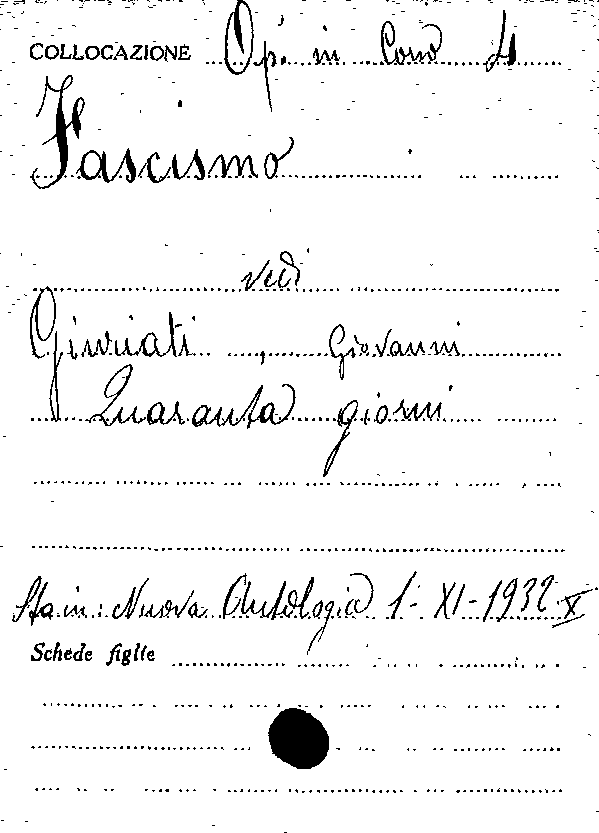 COLLOCAZIONE Op. in Cons 4
Fascismo
vedi
Giuriati, Giovanni
Quaranta giorni
Sta in: Nuova Antologia 1-XI-1932-X
Schede figlie